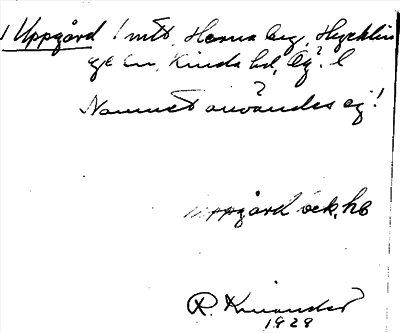 Uppgård 1 mtl, Horna by, Hycklin
ge sn, Kinda hd, Ög. l
Namnet användes ej!
Uppgård öck, hb
R. Kinander
1929